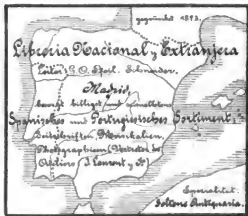 gegründet 1893.
Libreria Nacional y Extranjera
Leiter: E. O. Sperl. Schneider.
Madrid
besorgt billigst und schnellstens
Spanisches und Portugiesisches Sortiment:
Zeitschriften, Musikalien,
Photographieen (Vertreter des
J. Laurent y
Specialität:
Seltene Antiquaria.